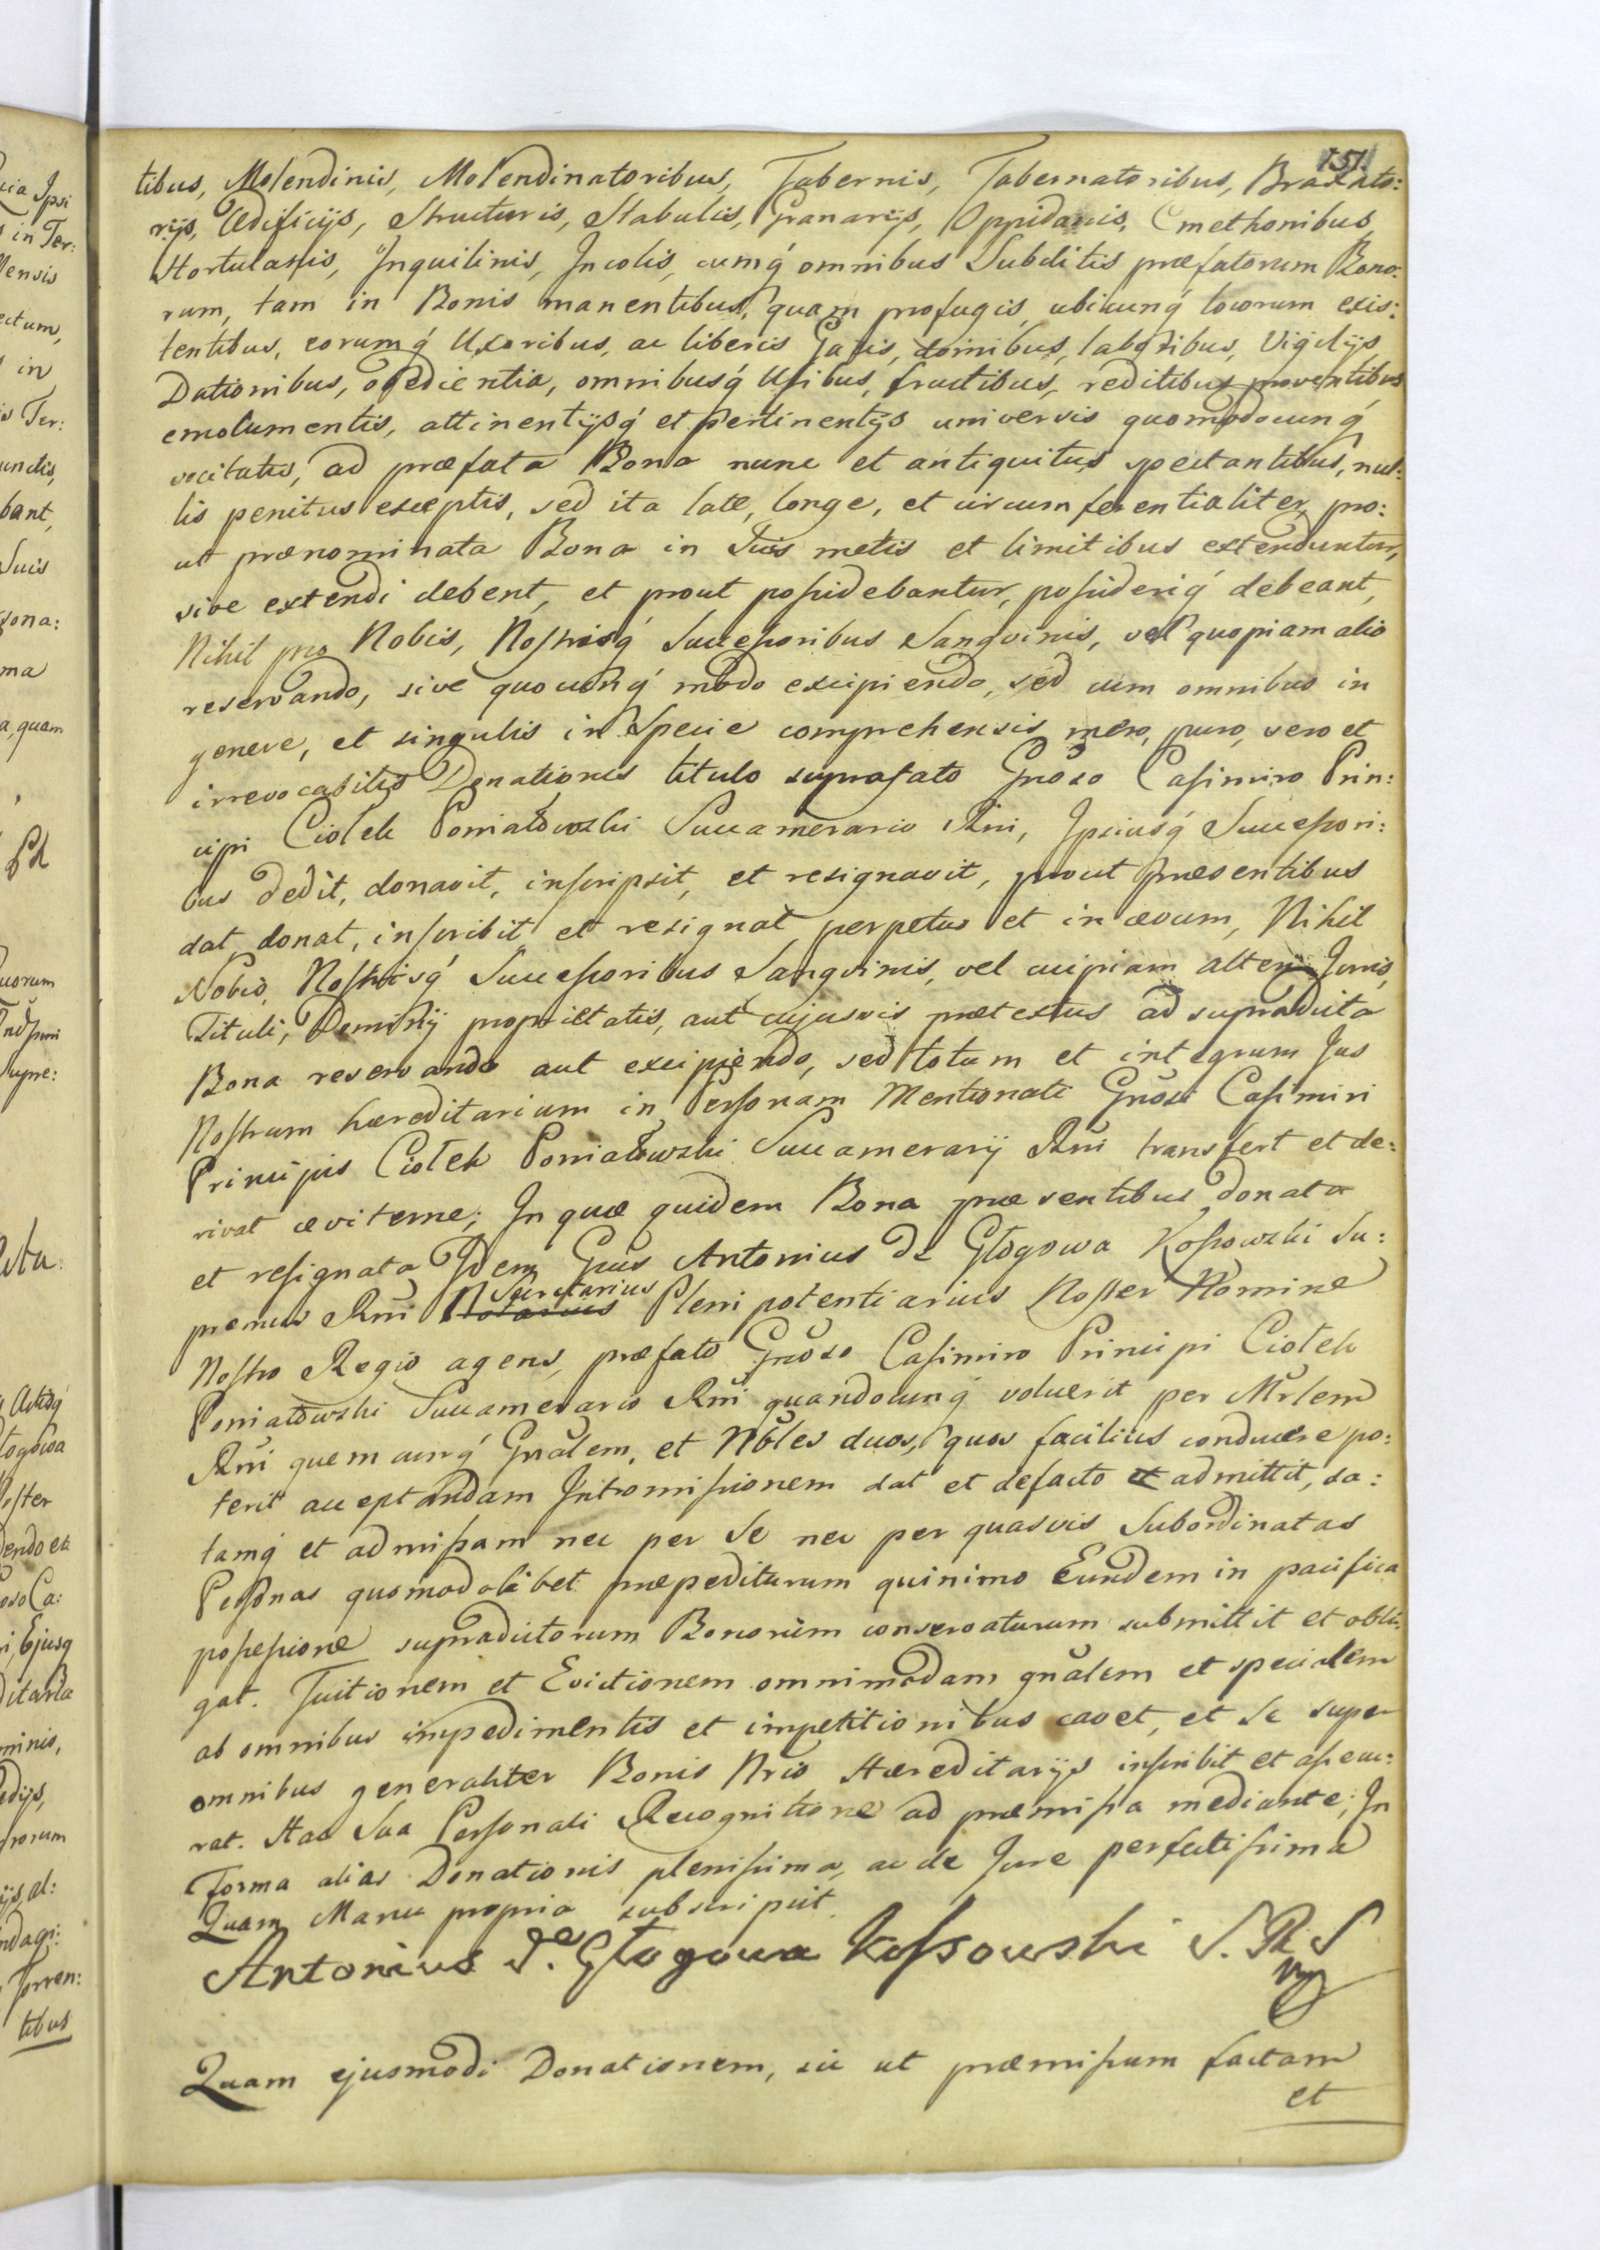 151.
tibus, Molendinis, Molendinatoribus, Tabernis, Tabernatoribus, Braxato:
rijs, Ædificijs, Structuris, Stabulis, Granarijs, Oppidanis, Cmethonibus,
Hortulanis, Inquilinis, Incolis, cumq́ omnibus Subditis præfatorum Bono:
rum, tam in Bonis manentibus, quam profugis, ubicunq́ locorum exis:
tentibus, eorumq́ Uxoribus, ac liberis Gazis, domibus, laboribus, Vigilijs,
Dationibus, obedientia, omnibusq́ Usibus, fructibus, reditibus, proventibus
emolumentis, attinentijsq́ et pertinentijs universis quomodocunq́
vocitatis, ad præfata Bona nunc et antiquitus spectantibus, nul:
lis penitus exceptis, sed ita late, longe, et circumferentialiter, pro:
ut prænominata Bona in Suis metis et limitibus extenduntur,
sive extendi debent, et prout possidebantur, possideriq́ debeant,
Nihil pro Nobis, Nostrisq́ Successoribus Sangvinis, vel quopiam alio
reservando, sive quocunq́ modo excipiendo, sed cum omnibus in
genere, et singulis in Specie comprehensis mero, puro, vero et
irrevocabilis Donationis titulo suprafato Gnŏso Casimiro Prin:
cipi Ciołek Poniatowski Succamerario Rni, Ipsiusq́ Successori:
bus dedit, donavit, inscripsit, et resignavit, prout præsentibus
dat, donat, inscribit et resignat perpetuo et in ævum, Nihil
Nobis, Nostrisq́ Successoribus Sangvinis, vel cuipiam alteri Juris,
Tituli, Dominij proprietatis, aut cujusvis prætextus ad supradicta
Bona reservando aut excipiendo, sed totum et integrum Jus
Nostrum hæreditarium in Personam Mentionati Gnŏsi Casimiri
Principis Ciołek Poniatowski Succamerarij Rni transfert et de:
rivat æviterne; In quæ quidem Bona præsentibus donata
et resignata Idem Gnŭs Antonius de Głogowa Kossowski Su:
premus Rni Notarius Secretarius Plenipotentiarius Noster Nomine
Nostro Regio agens, præfato Gnŏso Casimiro Principi Ciołek
Poniatowski Succamerario Rni quandocunq́ voluerit per Mrlem
Rni quemcunq́ Gnălem, et Nŏbles duos, quos facilius conducere po:
terit acceptandam Intromissionem dat et defacto et admittit, da:
tamq́ et admissam nec per Se nec per quasvis Subordinatas
Personas quomodolibet præpediturum quinimo Eundem in pacifica
possessione supradictorum Bonorum conservaturum submittit et obli:
gat. Tuitionem et Evictionem omnimodam gnălem et specialem
ab omnibus impedimentis et impetitionibus cavet, et Se super
omnibus generaliter Bonis Nris Hæreditarijs inscribit et assecu:
rat. Hac Sua Personali Recognitione ad præmissa mediante; In
Forma alias Donationis plenissima, ac de Jure perfectissima
Quam Manu propria subscripsit.
Antonius de Głogowa Kossowski S. R. S
Quam ejusmodi Donationem, sic ut præmissum factam
et